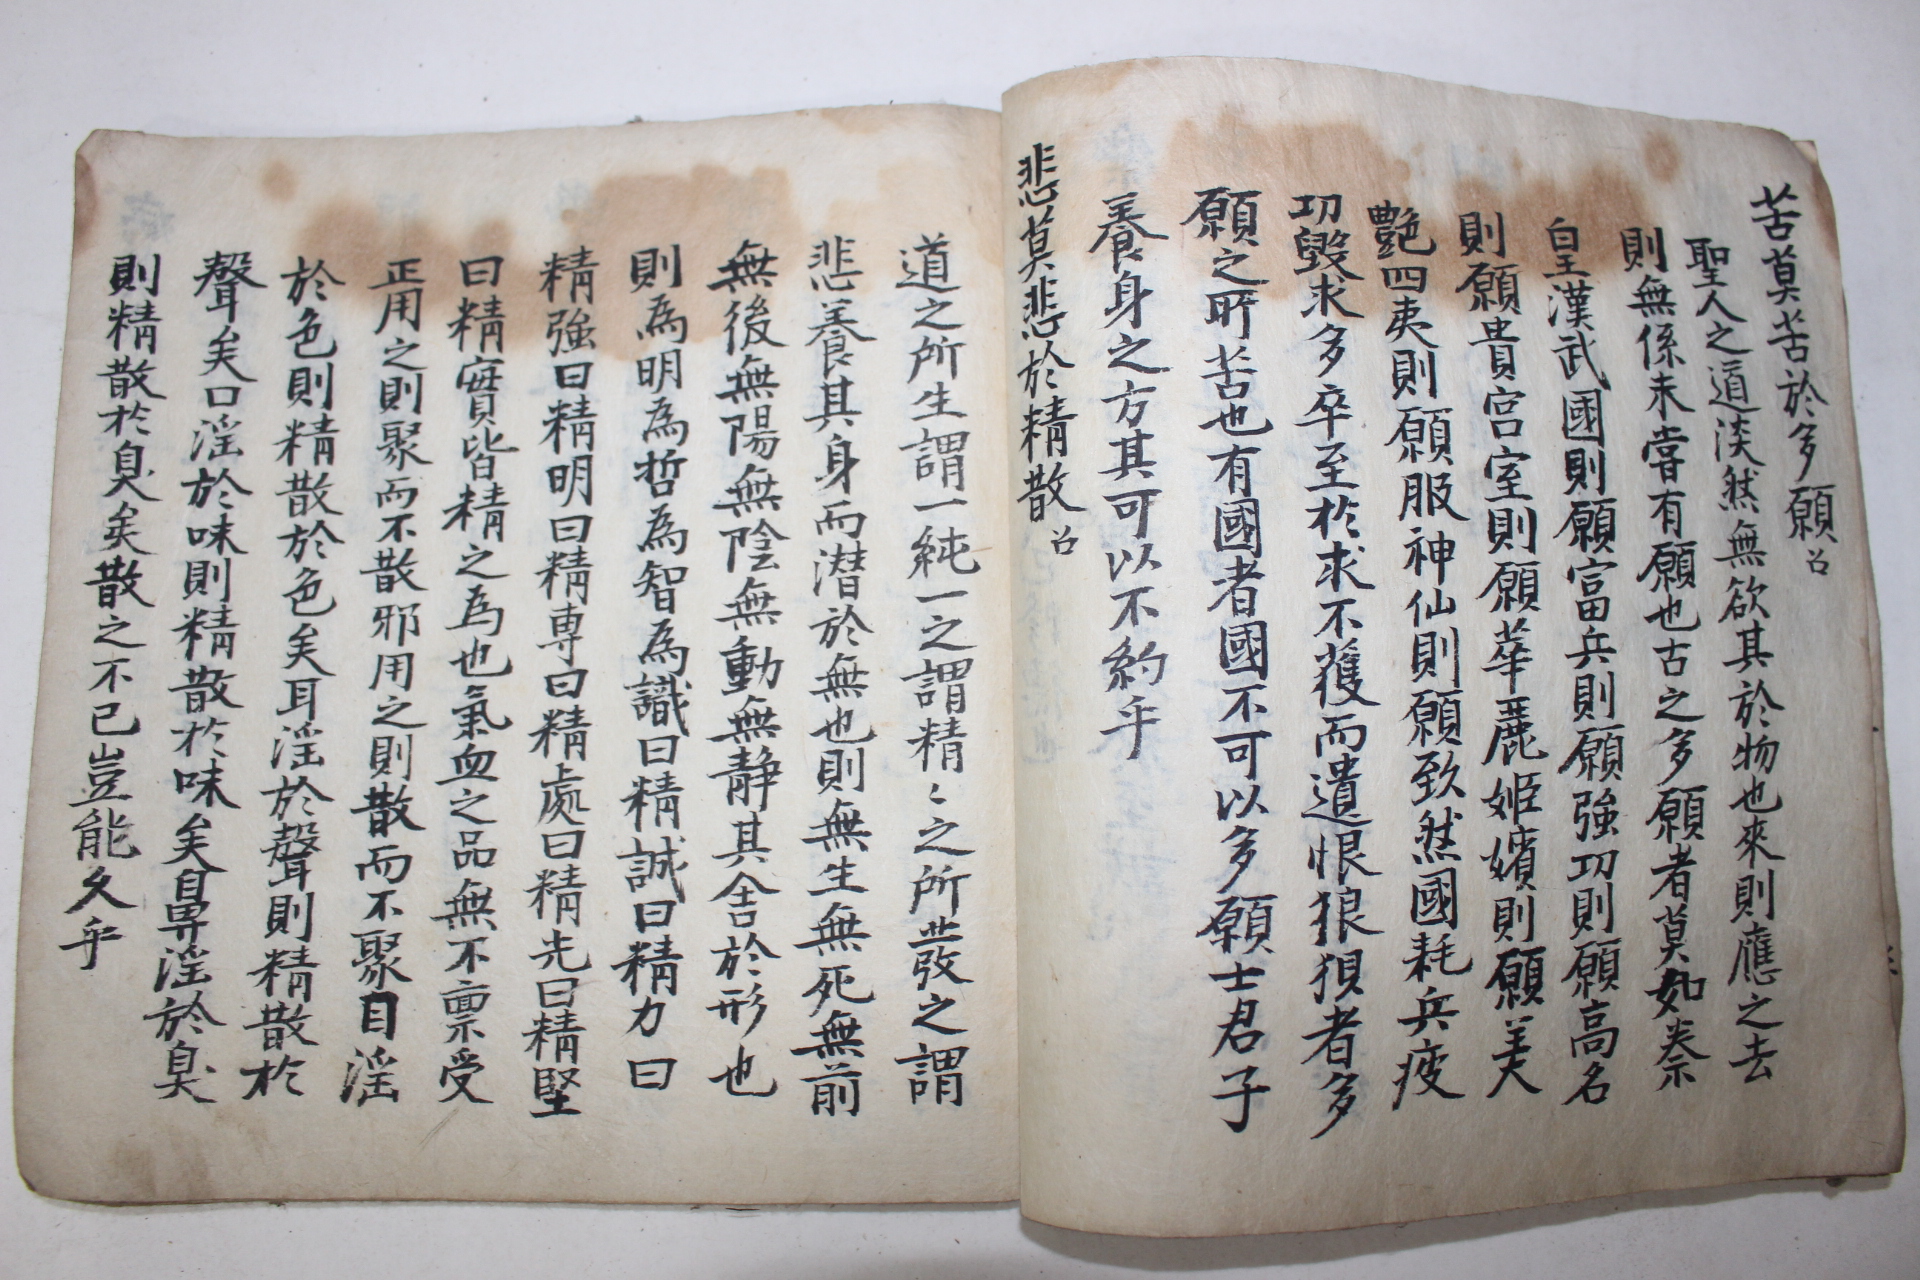 苦莫苦於多願 吕
聖人之道淡然無欲其於物也來則應之去
則無係未嘗有願也古之多願者莫如秦
皇漢武國則願富兵則願強功則願高名
則願貴宮室則願華麗姬嬪則願美
艶四夷則願服神仙則願致然國耗兵疲
功毀求多卒至於求不獲而遺恨狼狽者多
願之所苦也有國者國不可以多願士君子
養身之方其可以不約乎
悲莫悲於精散 吕
道之所生謂一純一之謂精〻之所發之謂
悲養其身而潜於無也則無生無死無前
無後無陽無陰無動無静其舍於形也
則為明為哲為智為識曰精誠曰精力曰
精強曰精明曰精専曰精處曰精光曰精堅
曰精實皆精之為也氣血之品無不禀受
正用之則聚而不散邪用之則散而不聚目淫
於色則精散於色矣耳淫於聲則精散於
聲矣口淫於味則精散於味矣鼻淫於臭
則精散於臭矣散之不已豈能久乎